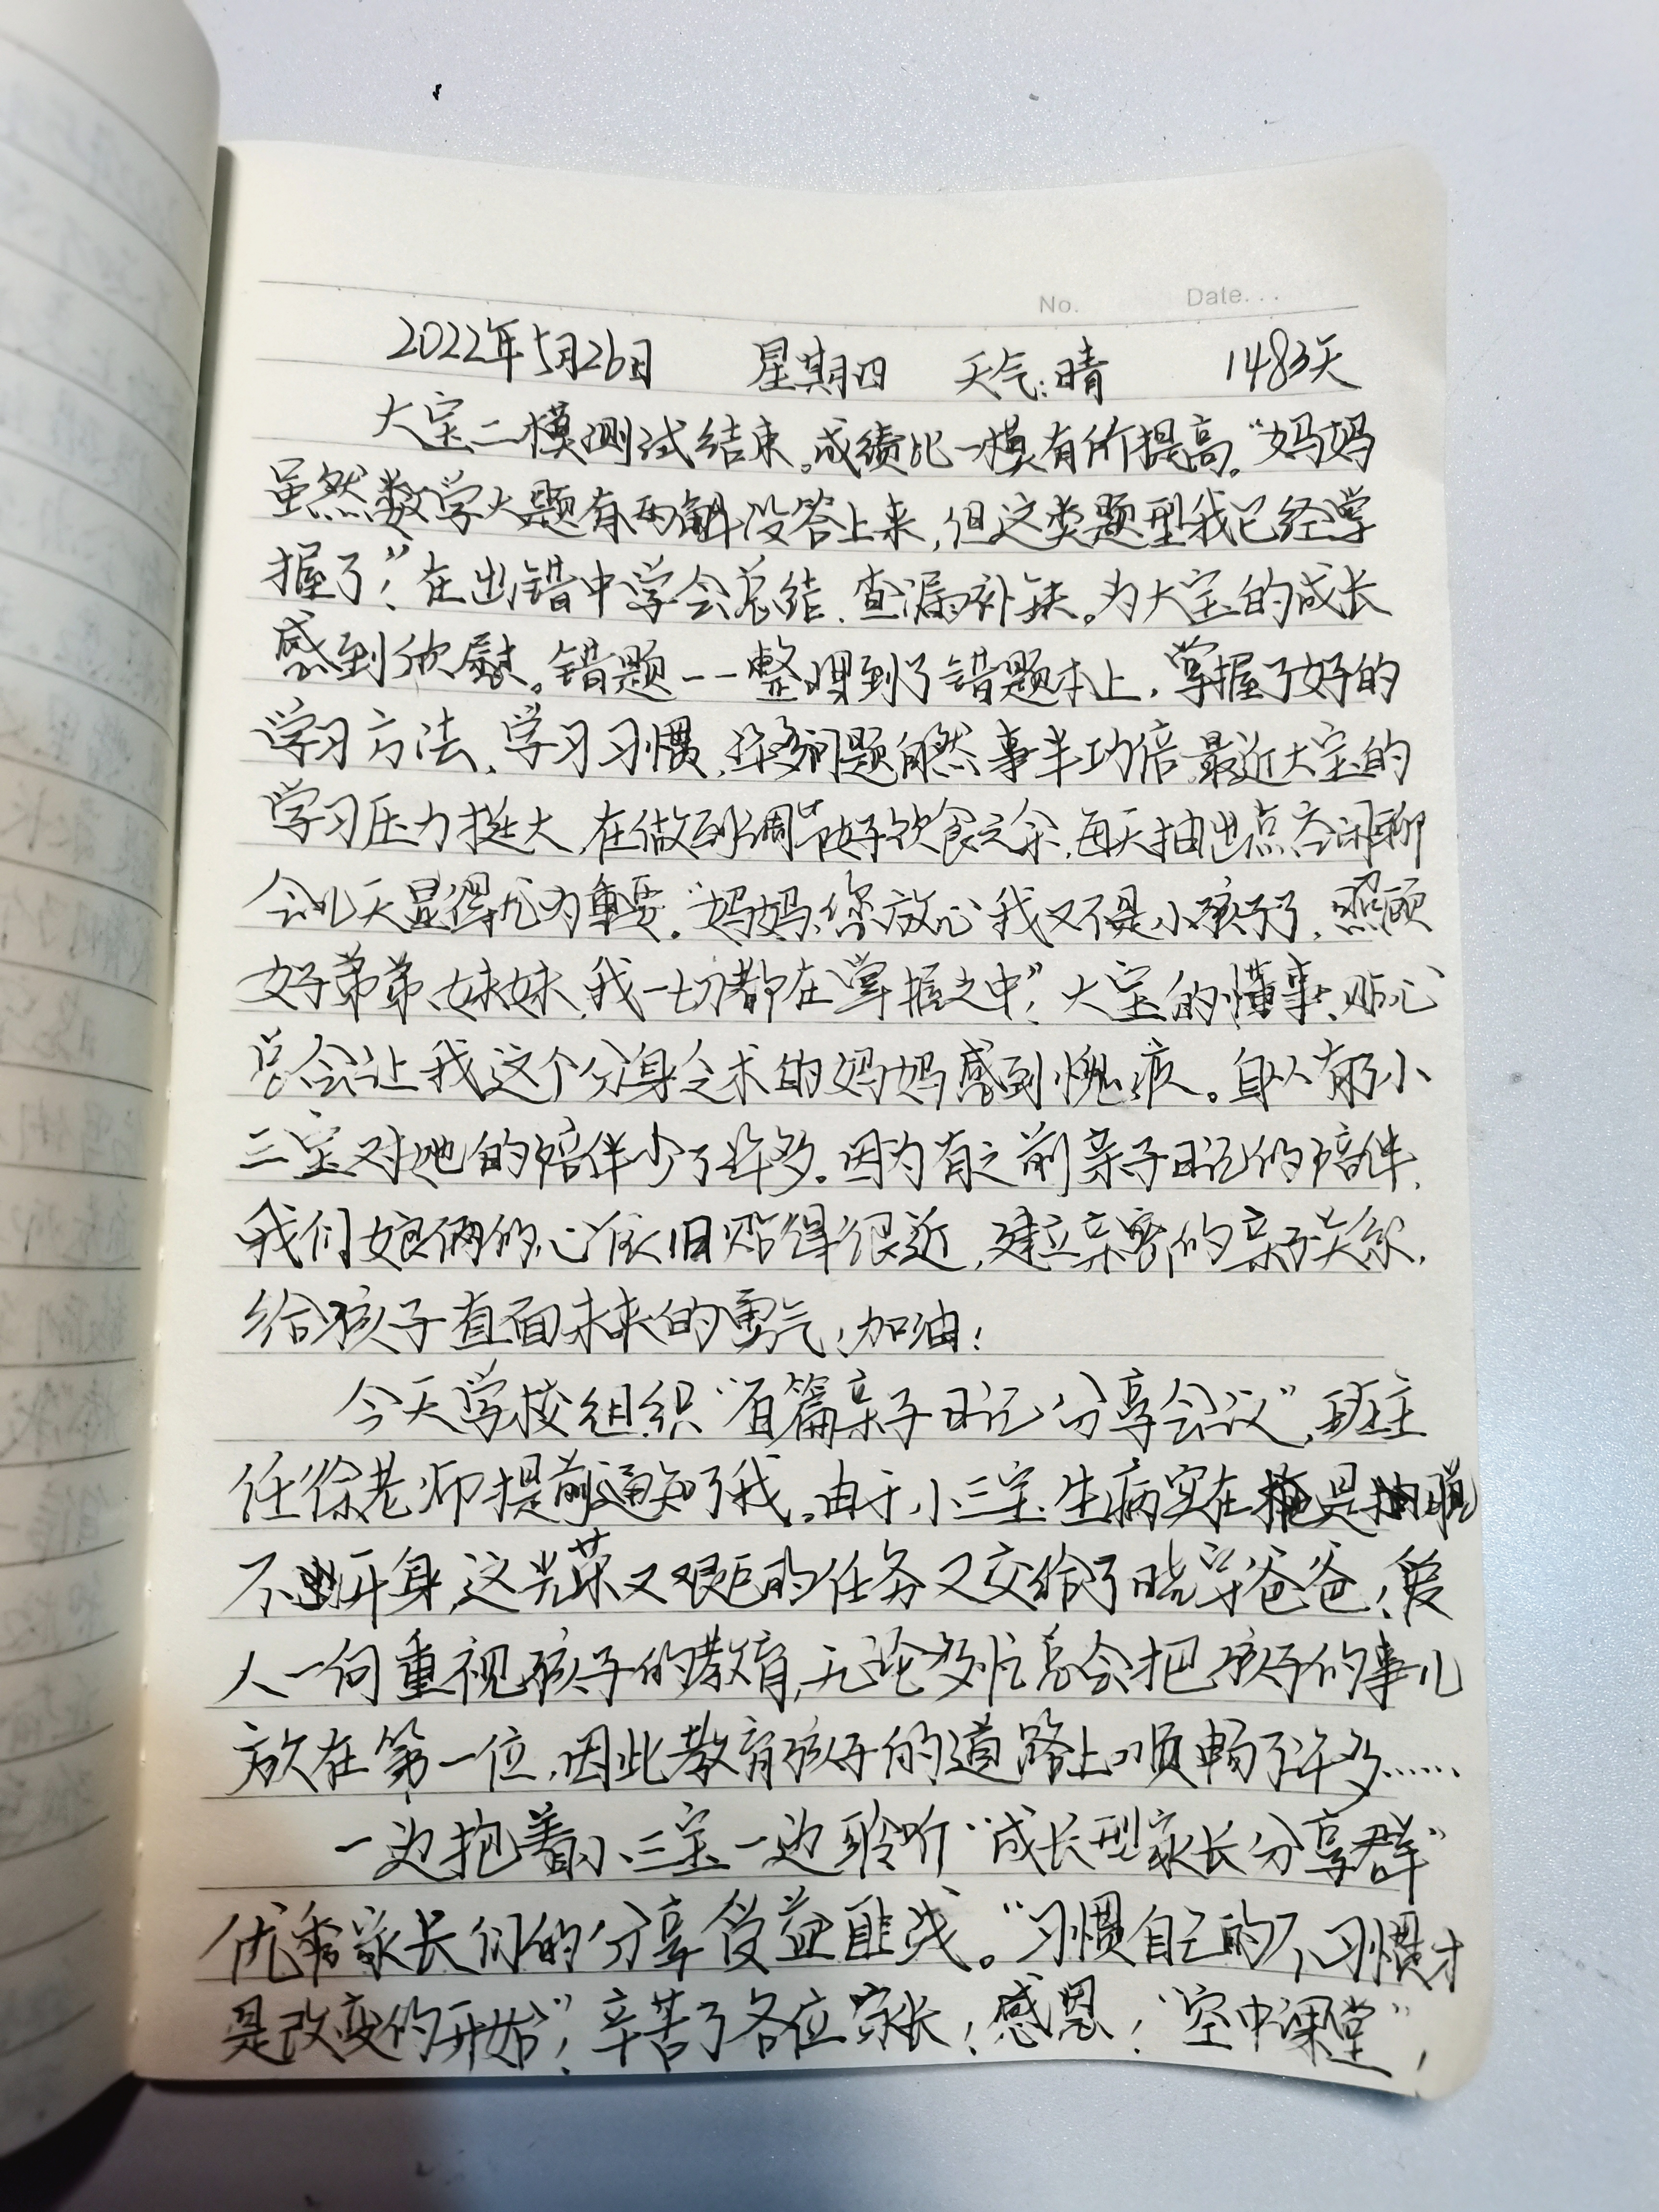 No. Date...
2022年5月26日 星期四 天气:晴 1483天
大宝二模测试结束。成绩比一模有所提高。“妈妈
虽然数学大题有两解没答上来,但这类题型我已经掌
握了!”在出错中学会总结、查漏补缺。为大宝的成长
感到欣慰。错题一一整理到了错题本上,掌握了好的
学习方法、学习习惯,问题自然事半功倍。最近大宝的
学习压力挺大,在做到调节好饮食之余,每天抽出点空闲聊
会儿天显得尤为重要。“妈妈,您放心我又不是小孩子了,照顾
好弟弟、妹妹,我一切都在掌握之中”!大宝的懂事、贴心
总会让我这个分身乏术的妈妈感到愧疚。自从有了小
三宝对她的陪伴少了许多。因为有之前亲子日记的陪伴,
我们娘俩的心依旧贴得很近,建立亲密的亲子关系,
给孩子直面未来的勇气,加油!
今天学校组织“百篇亲子日记分享会议”,班主
任徐老师提前通知了我。由于小三宝生病实在是抽脱
不开身,这光荣又艰巨的任务又交给了晓宇爸爸!爱
人一向重视孩子的教育,无论多忙总会把孩子的事儿
放在第一位,因此教育孩子的道路上顺畅了许多……
一边抱着小三宝一边聆听“成长型家长分享群”
优秀家长们的分享受益匪浅。“习惯自己的不习惯才
是改变的开始”!辛苦了各位家长!感恩!“空中课堂”!